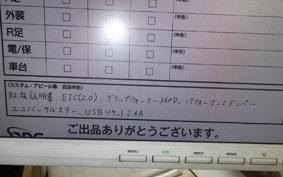 外装 (申告)
R足 (申告)
電/保 (申告)
車台 (申告)
(カスタム・アピール欄 自由申告)
取扱説明書、ETC(2.0)、グリップウォーマー360D、パフォーマンスダンパー
ユニバーサルステー、USBソケット2.4A
ご出品ありがとうございます。
MENU INPUT MOVE